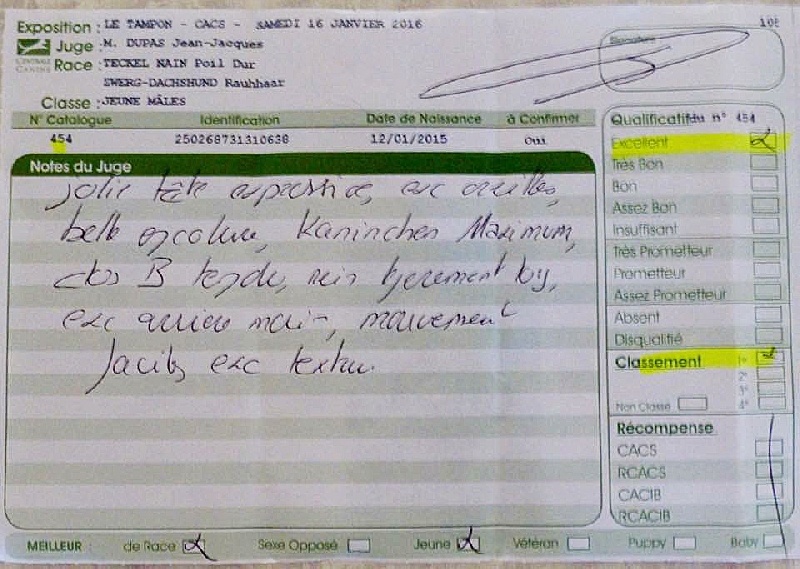 Exposition : LE TAMPON - CACS - SAMEDI 16 JANVIER 2016
108
Juge : M. DUPAS Jean-Jacques
Signature
CENTRALE CANINE
Race : TECKEL NAIN Poil Dur
ZWERG-DACHSHUND Rauhhaar
Classe : JEUNE MÂLES
N° Catalogue Identification Date de Naissance à Confirmer
454 250268731310638 12/01/2015 Oui
Notes du Juge
Jolie tête expressive, exc oreilles,
belle encolure, Kaninchen Maximum,
dos B tendu, rein légèrement long,
exc arrière main, mouvement
facile, exc texture.
Qualificatif du n° 454
Excellent
Très Bon
Bon
Assez Bon
Insuffisant
Très Prometteur
Prometteur
Assez Prometteur
Absent
Disqualifié
Classement 1e
2e
3e
Non Classé 4e
Récompense
CACS
RCACS
CACIB
RCACIB
MEILLEUR : de Race Sexe Opposé Jeune Vétéran Puppy Baby